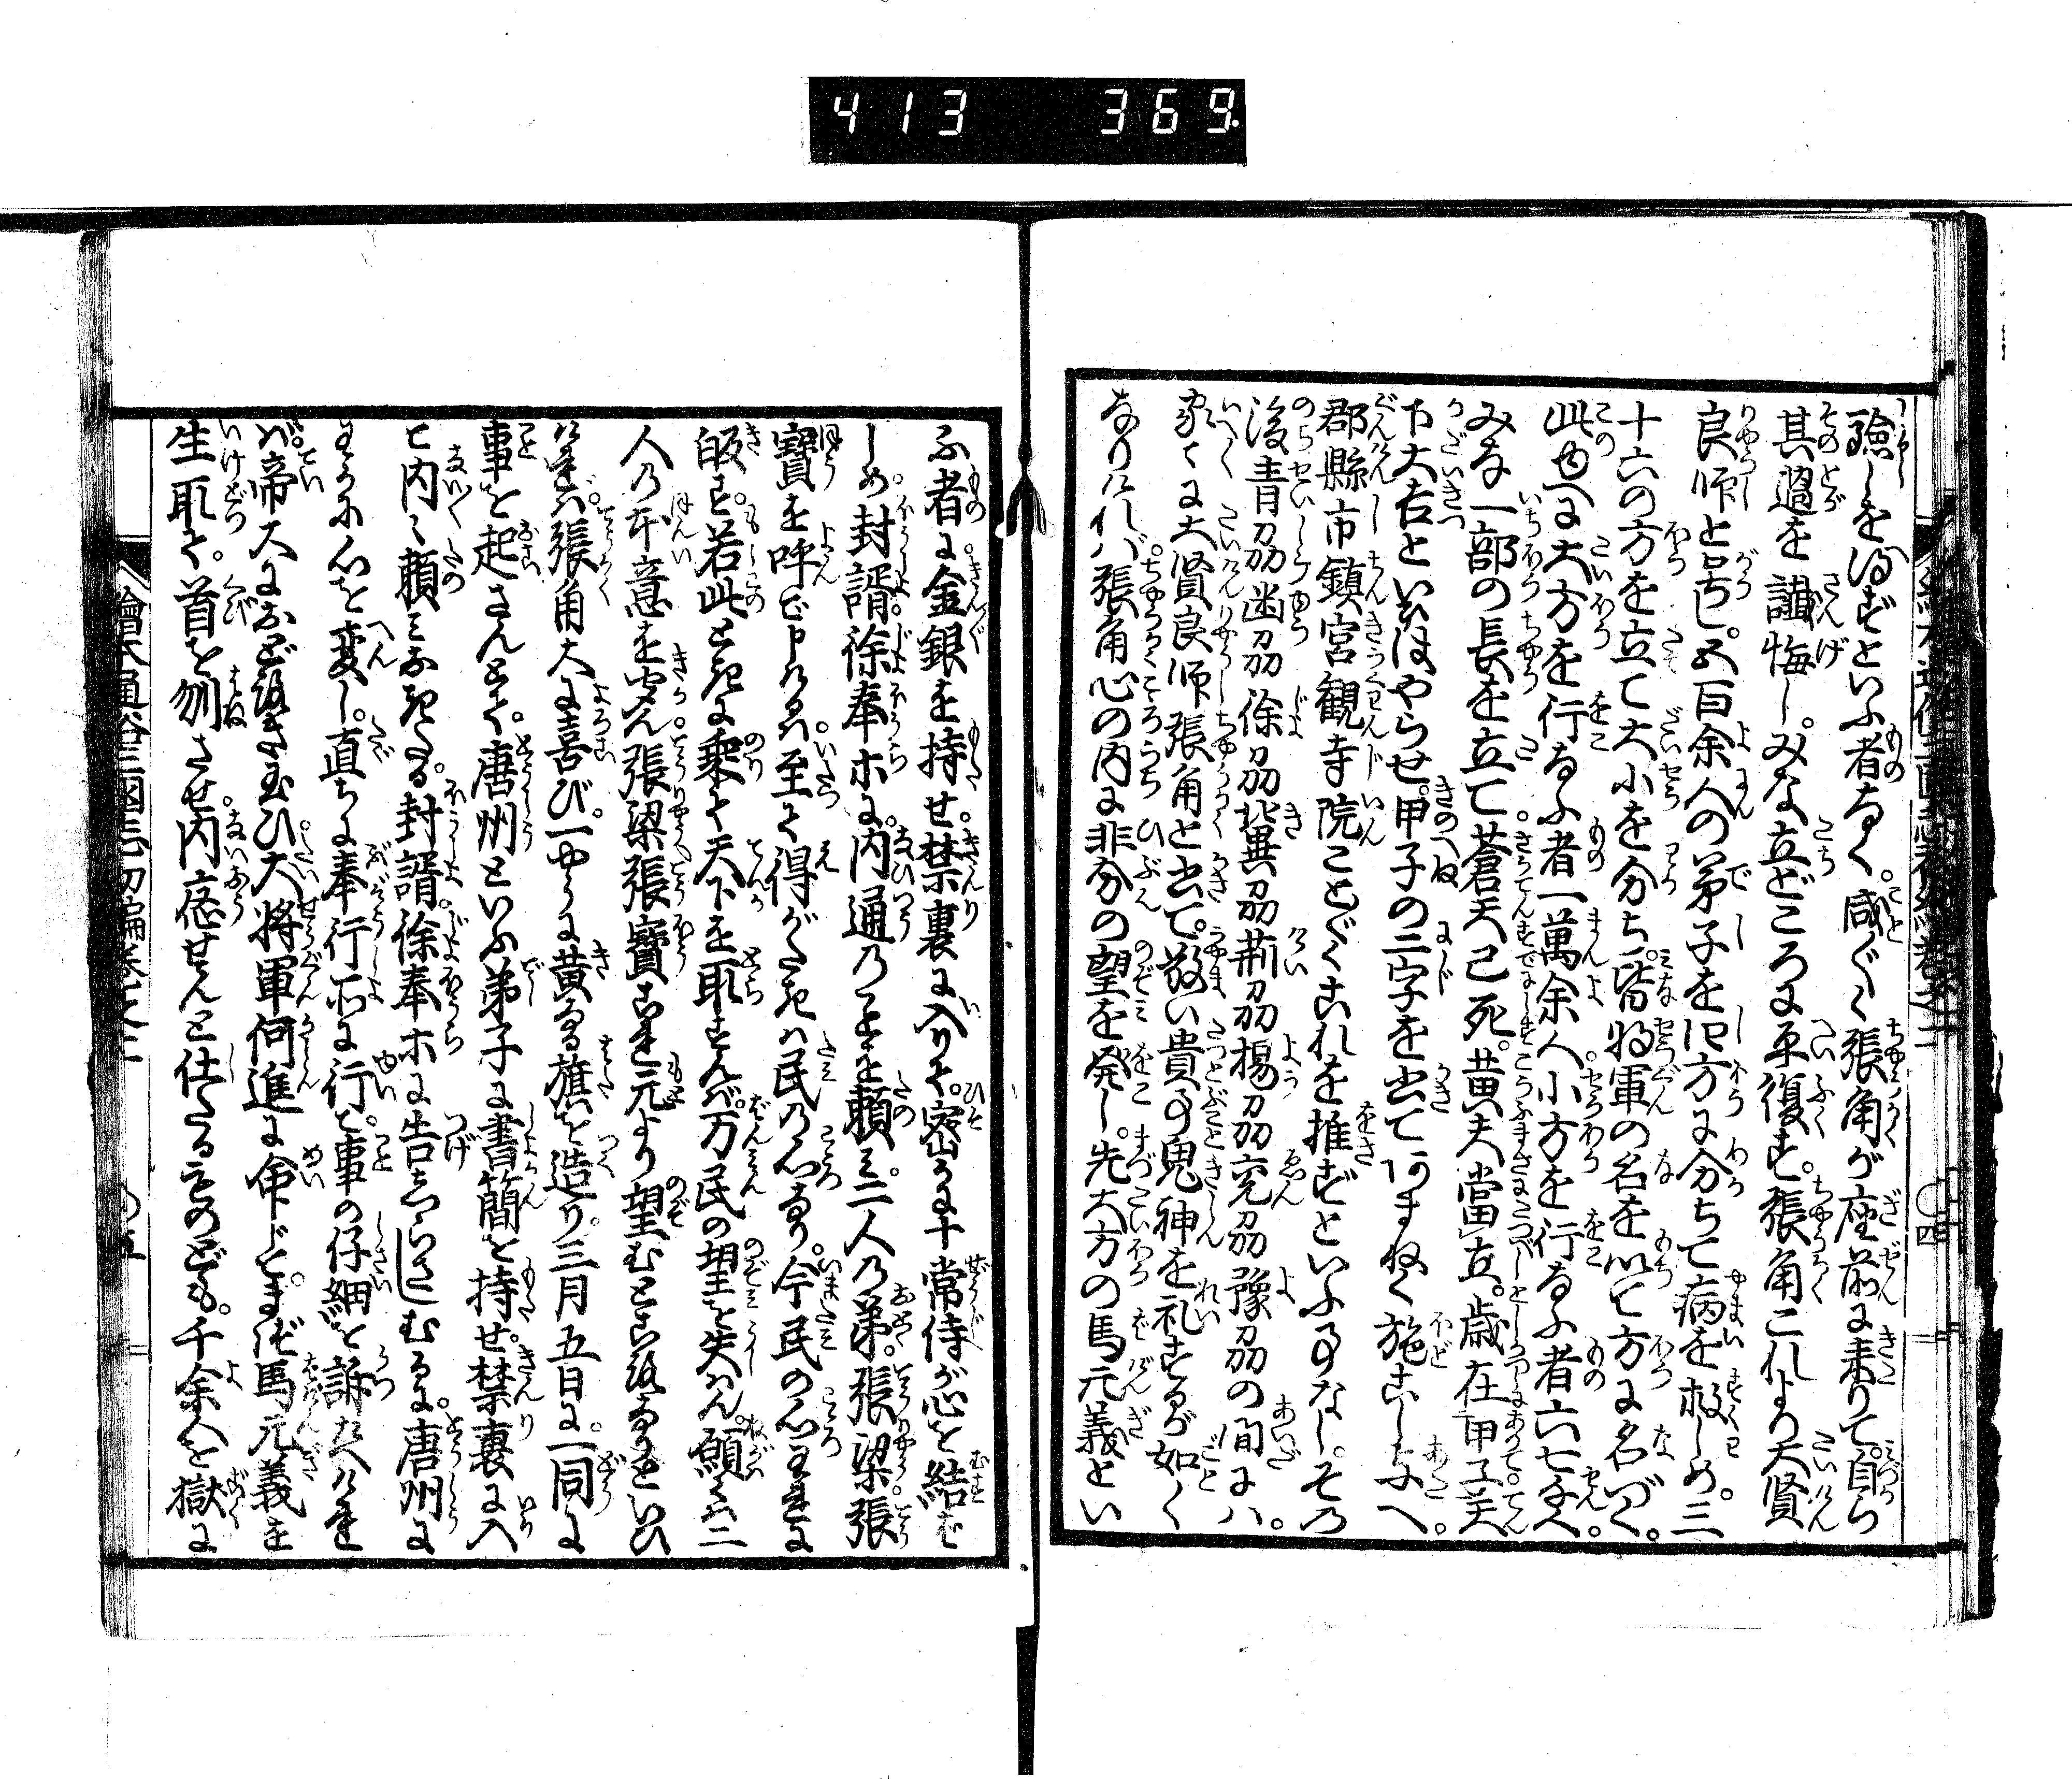 413 369.
驗しを得ずといふ者なく。咸ぐく張角が座前に来りて。自ら
其過を讖悔し。みな立どころに平復す。張角これより大賢
良师と号し。五百余人の弟子を四方に分ちて病を救しめ。三
十六の方を立て大小を分ち。皆将軍の名を以て方に名づく。
此内に大方を行なふ者一萬余人。小方を行なふ者六七千人。
みな一部の長を立て。蒼天已死。黄夫當立。歳在甲子天
下大吉といはやらせ。甲子の二字を出て。あまねく施こし与へ。
郡縣市鎮宮観寺院ことごとくこれを推ずといふ事なし。その
後青州幽州徐州冀州荊州揚州兖州豫州の間には。
家々に大賢良师張角と出て。敬い貴事鬼神を礼するが如く
なりければ。張角心の内に非分の望を発し。先大方の馬元義とい
ふ者に。金銀を持せ。禁裏に入りて。密かに十常侍が心を結ば
しめ。封諝。徐奉ホに。内通の事を頼み。二人の弟。張梁張
寶を呼で申けるは。至て得がたきハ民の心なり。今民の心われに
皈す。若此ときに乗て天下を取ずんば。万民の望を失はん。願くは二
人の本意を聞ん。張梁張寶これ元より望むところなりといひ
ければ。張角大に喜び。一やうに黄なる旗を造り。三月五日に。一同に
事を起さんとて。唐州といふ弟子に書簡を持せ。禁裏に入
て内々頼みおきたる。封諝。徐奉ホに告しらさしむるに。唐州に
わかに心を変し。直ちに奉行所に行て。事の仔細を訴へけれ
ば。帝大におどろき玉ひ。大将軍何進に命じて。まづ馬元義を
生取て。首を刎させ。内應せんと仕たるものども。千余人を獄に
繪本通俗三國志初編巻之二